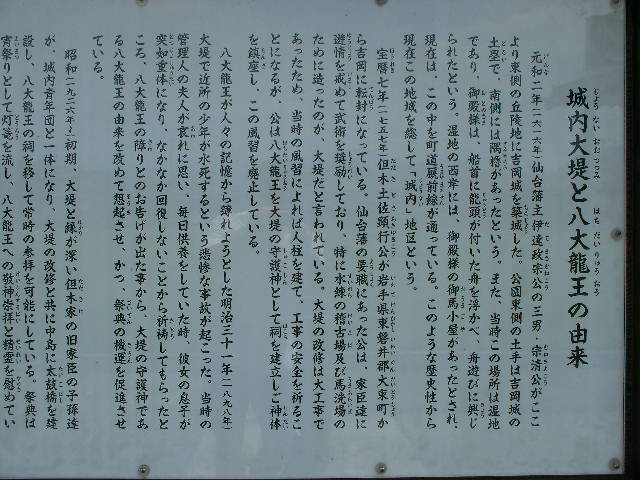 城内大堤と八大龍王の由来
元和二年(一六一六年)仙台藩主伊達政宗公の三男・宗清公がここ
より東側の丘陵地に吉岡城を築城した。公園東側の土手は吉岡城の
土塁で、南側には隅櫓があったという。また、当時この場所は湿地
であり、御殿様は、船首に龍頭が付いた舟を浮かべ、舟遊びに興じ
られたという。湿地の西岸には、御殿様の御馬小屋があったとされ、
現在は、この中を町道厩前線が通っている。このような歴史性から
現在この地域を総して「城内」地区という。
宝暦七年(一七五七年)但木土佐顕行公が岩手県東磐井郡大東町か
ら吉岡に転封になっている。仙台藩の要職にあった公は、家臣達に
遊惰を戒めて武術を奨励しており、特に水練の稽古場及び馬洗場の
ために造ったのが、大堤だと言われている。大堤の改修は大工事で
あったため、当時の風習によれば人柱を建て、工事の安全を祈るこ
とになるが、公は八大龍王を大堤の守護神として祠を建立しご神体
を鎮座し、この風習を廃止している。
八大龍王が人々の記憶から薄れようとした明治三十一年(一八九八年)
大堤で近所の少年が水死するという悲惨な事故が起こった。当時の
管理人の夫人が哀れに思い、毎日供養をしていた時、彼女の息子が
突如重体になり、なかなか回復しないことから祈祷してもらったと
ころ、八大龍王の障りとのお告げが出た事から、大堤の守護神であ
る八大龍王の由来を改めて想起させ、かつ、祭典の機運を促進させ
ている。
昭和(一九二六年~)初期、大堤と縁が深い但木家の旧家臣の子孫達
が、城内青年団と一体になり、大堤の改修と共に中島に太鼓橋を建
設し、八大龍王の祠を移して常時の参拝を可能にしている。祭典は
宵祭りとして灯篭を流し、八大龍王への敬神崇拝と精霊を慰めてい